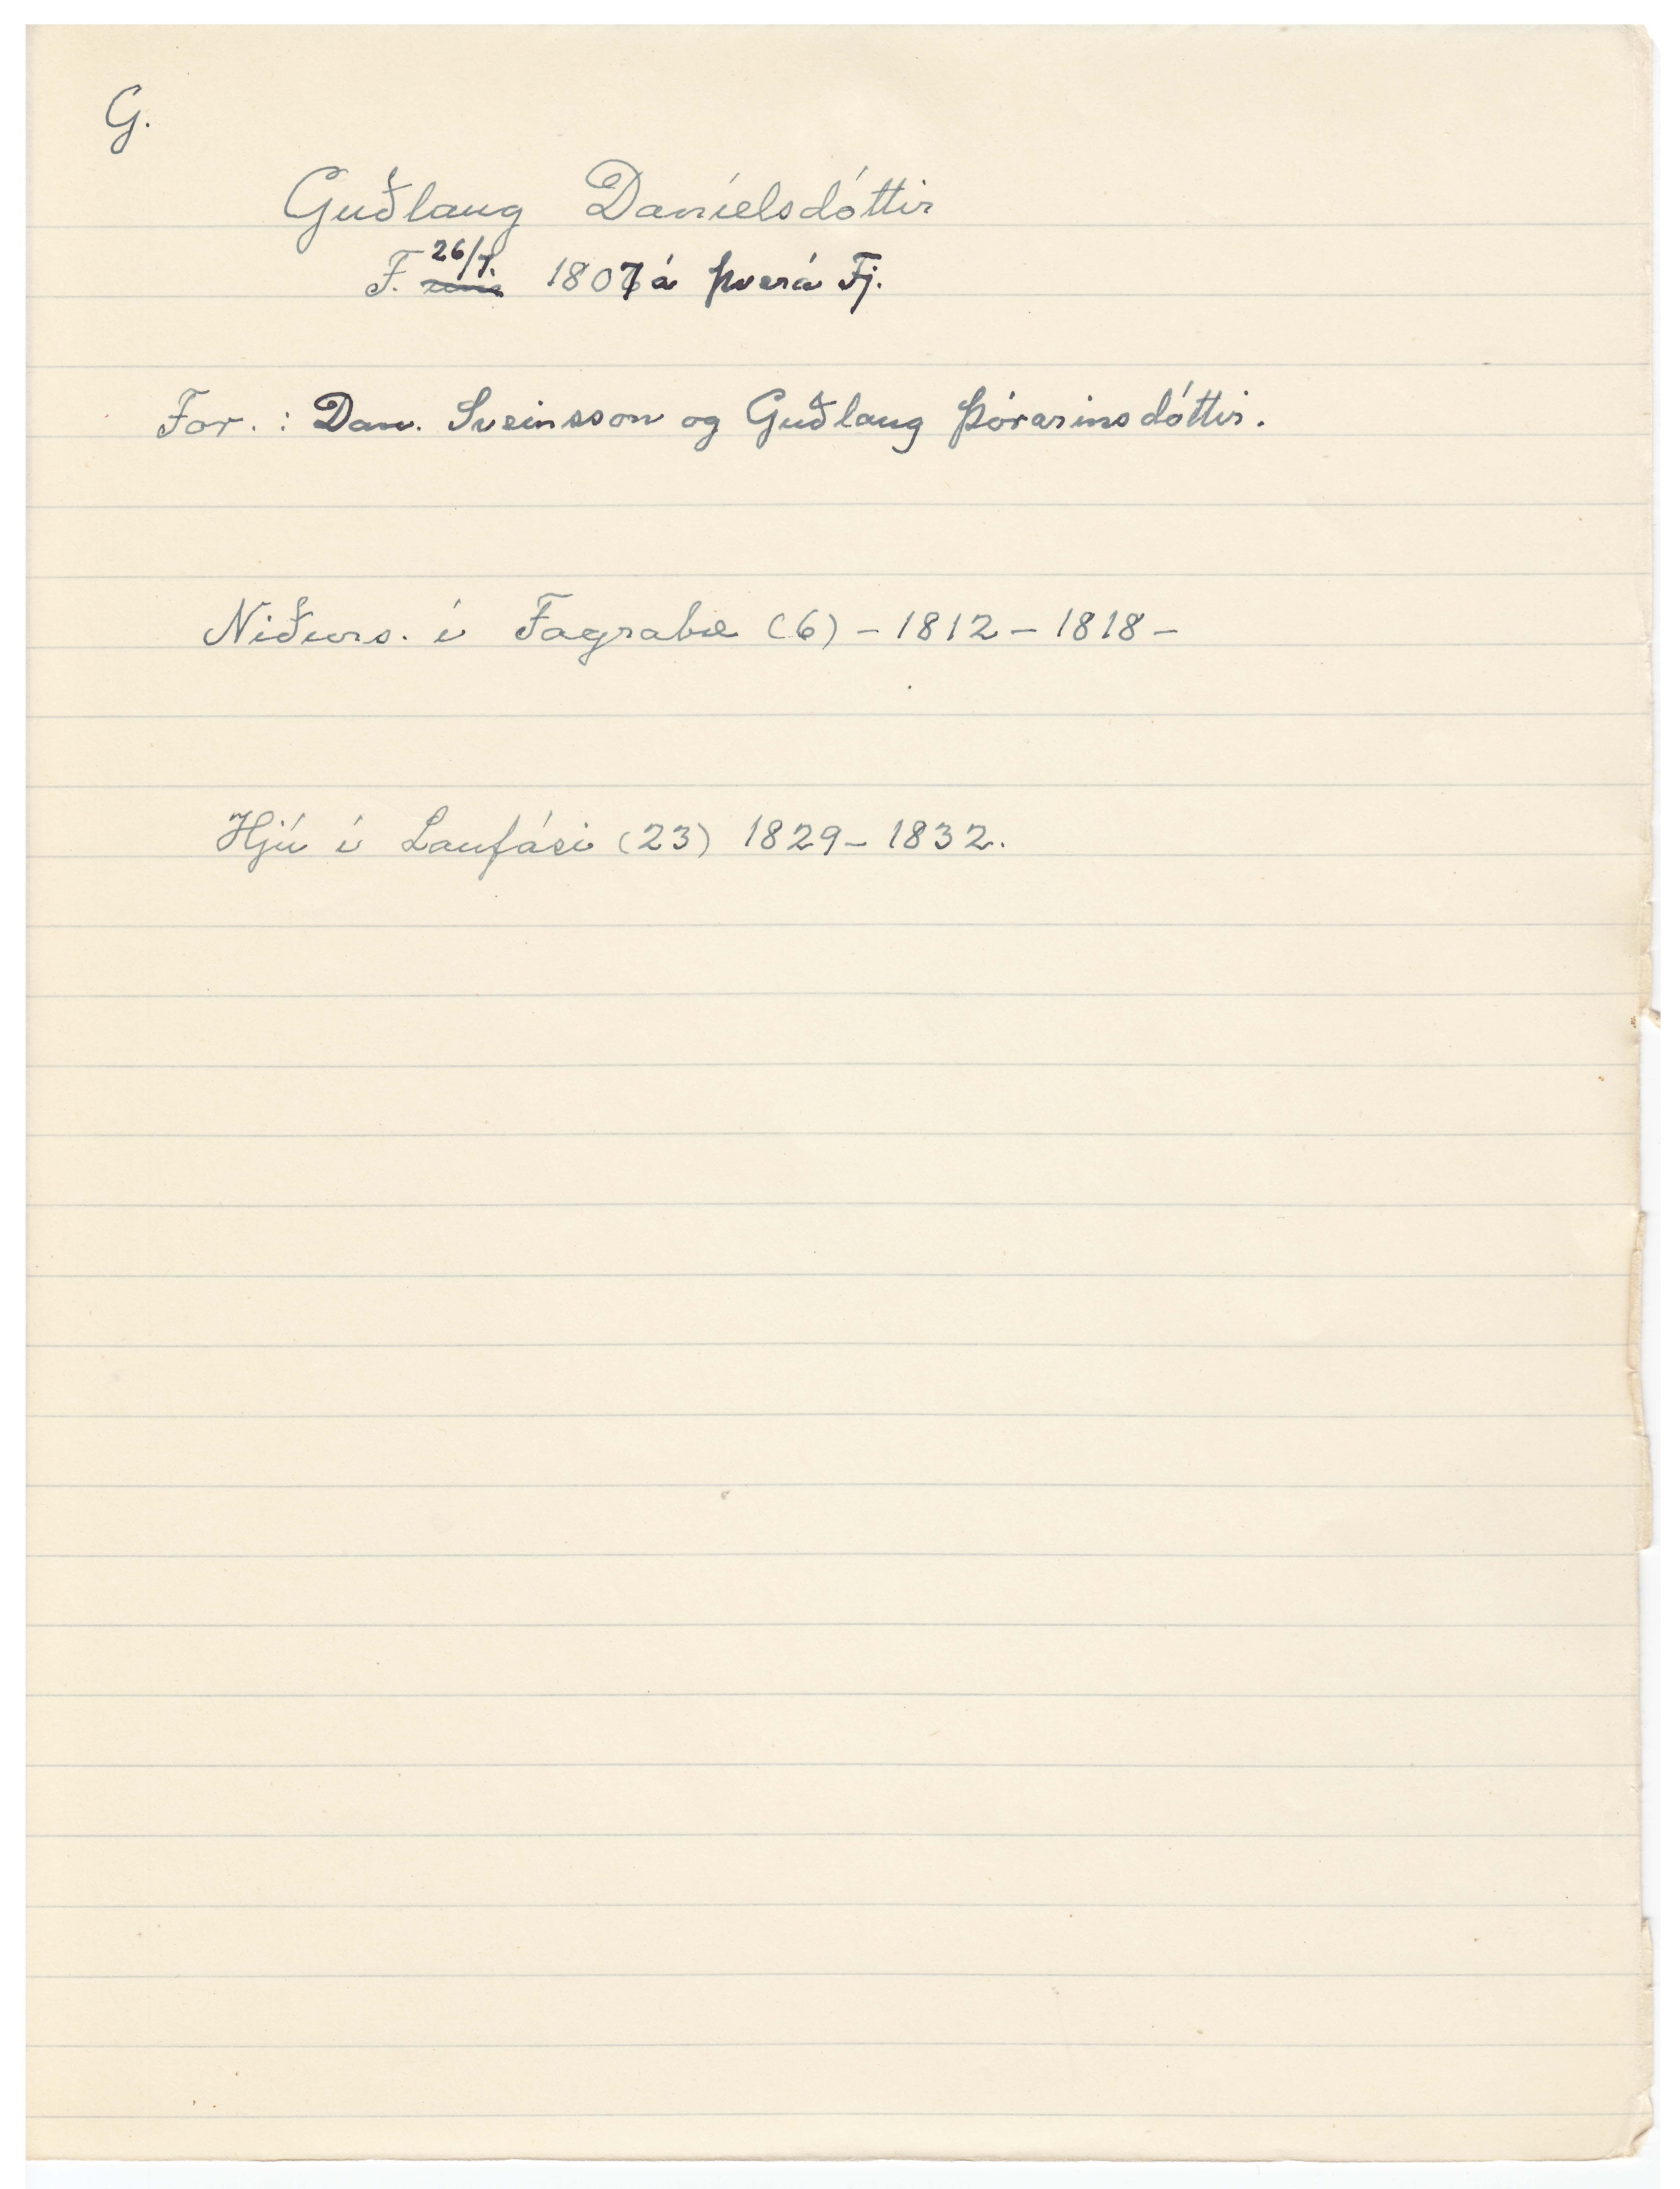 G.
Guðlaug Daníelsdóttir
F. 26/7. 1807 á Þverá Fj.
For. : Dan. Sveinsson og Guðlaug Þórarinsdóttir.
Niðurs. í Fagrabæ (6) - 1812 - 1818 -
Hjú í Laufási (23) 1829 - 1832.